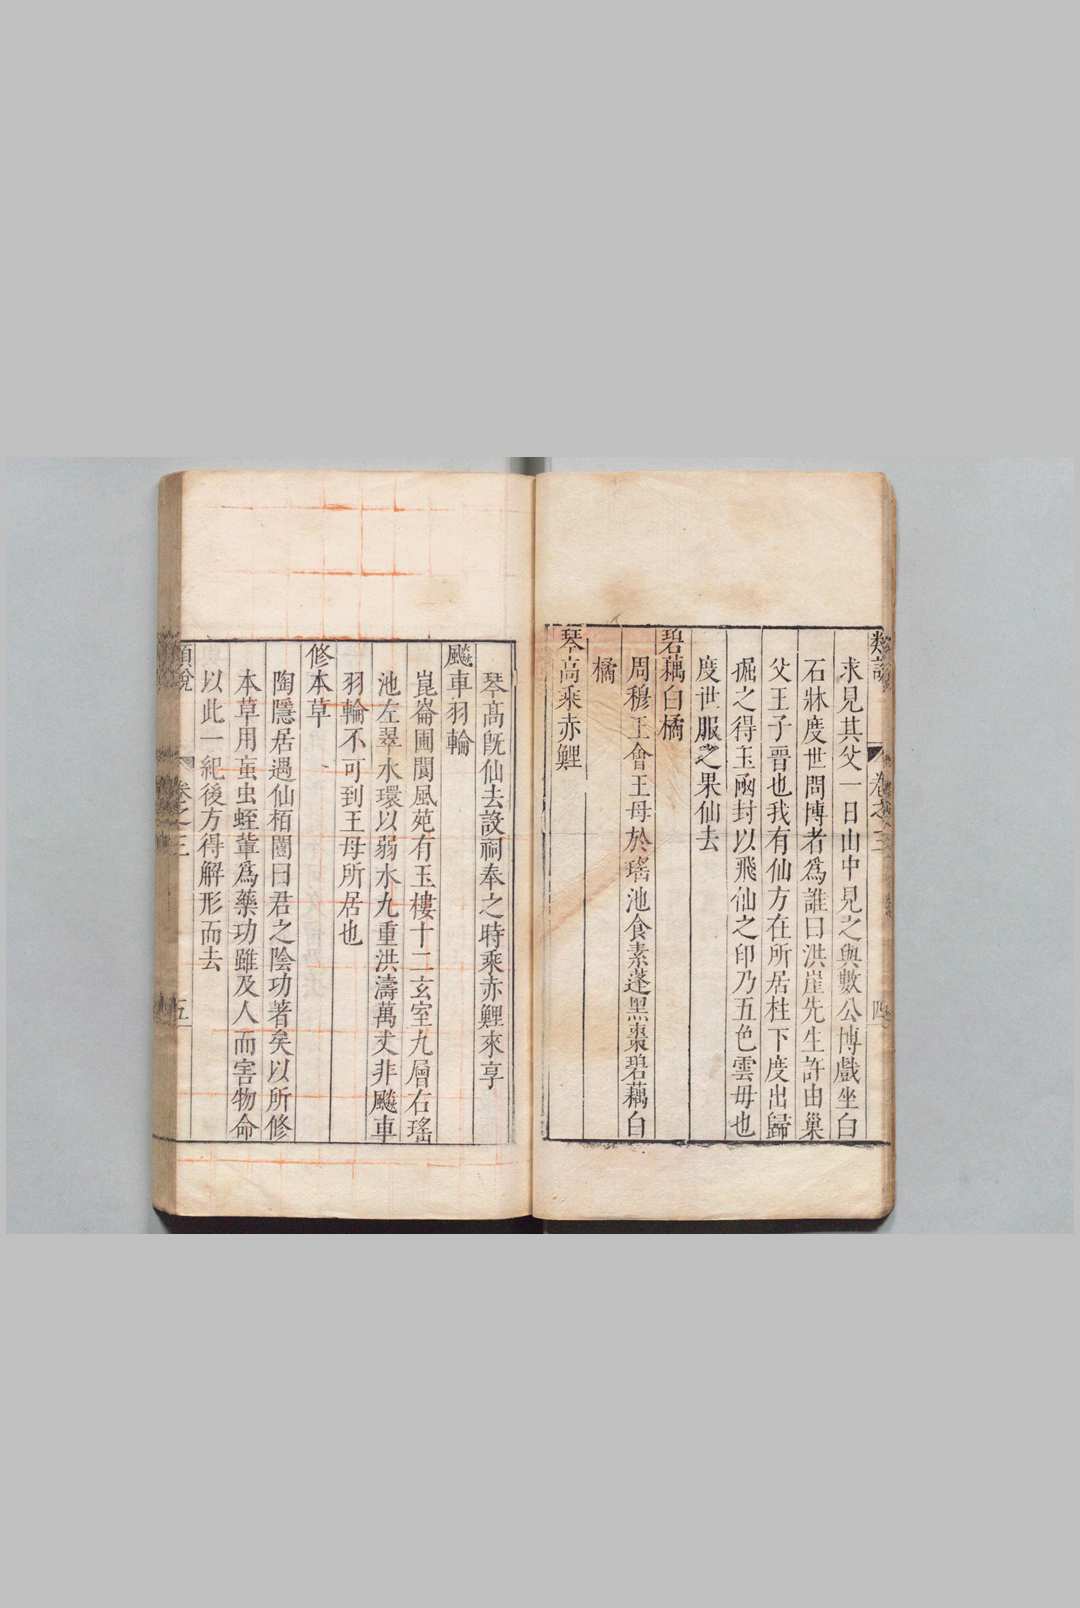 類說 卷之三 四
求見其父一日山中見之與數公博戲坐白
石牀度世問博者爲誰曰洪崖先生許由巢
父王子晉也我有仙方在所居柱下度出歸
掘之得玉凾封以飛仙之印乃五色雲母也
度世服之果仙去
碧藕白橘
周穆王會王母於瑤池食素蓬黑棗碧藕白
橘
琴高乘赤鯉
琴高旣仙去設祠奉之時乘赤鯉來享
飇車羽輪
崑崙圃閬風苑有玉樓十二玄室九層右瑤
池左翠水環以弱水九重洪濤萬丈非飇車
羽輪不可到王母所居也
修本草
陶隱居遇仙栢闓曰君之陰功著矣以所修
本草用䖟虫蛭軰爲藥功雖及人而害物命
以此一紀後方得解形而去
類說 卷之三 五